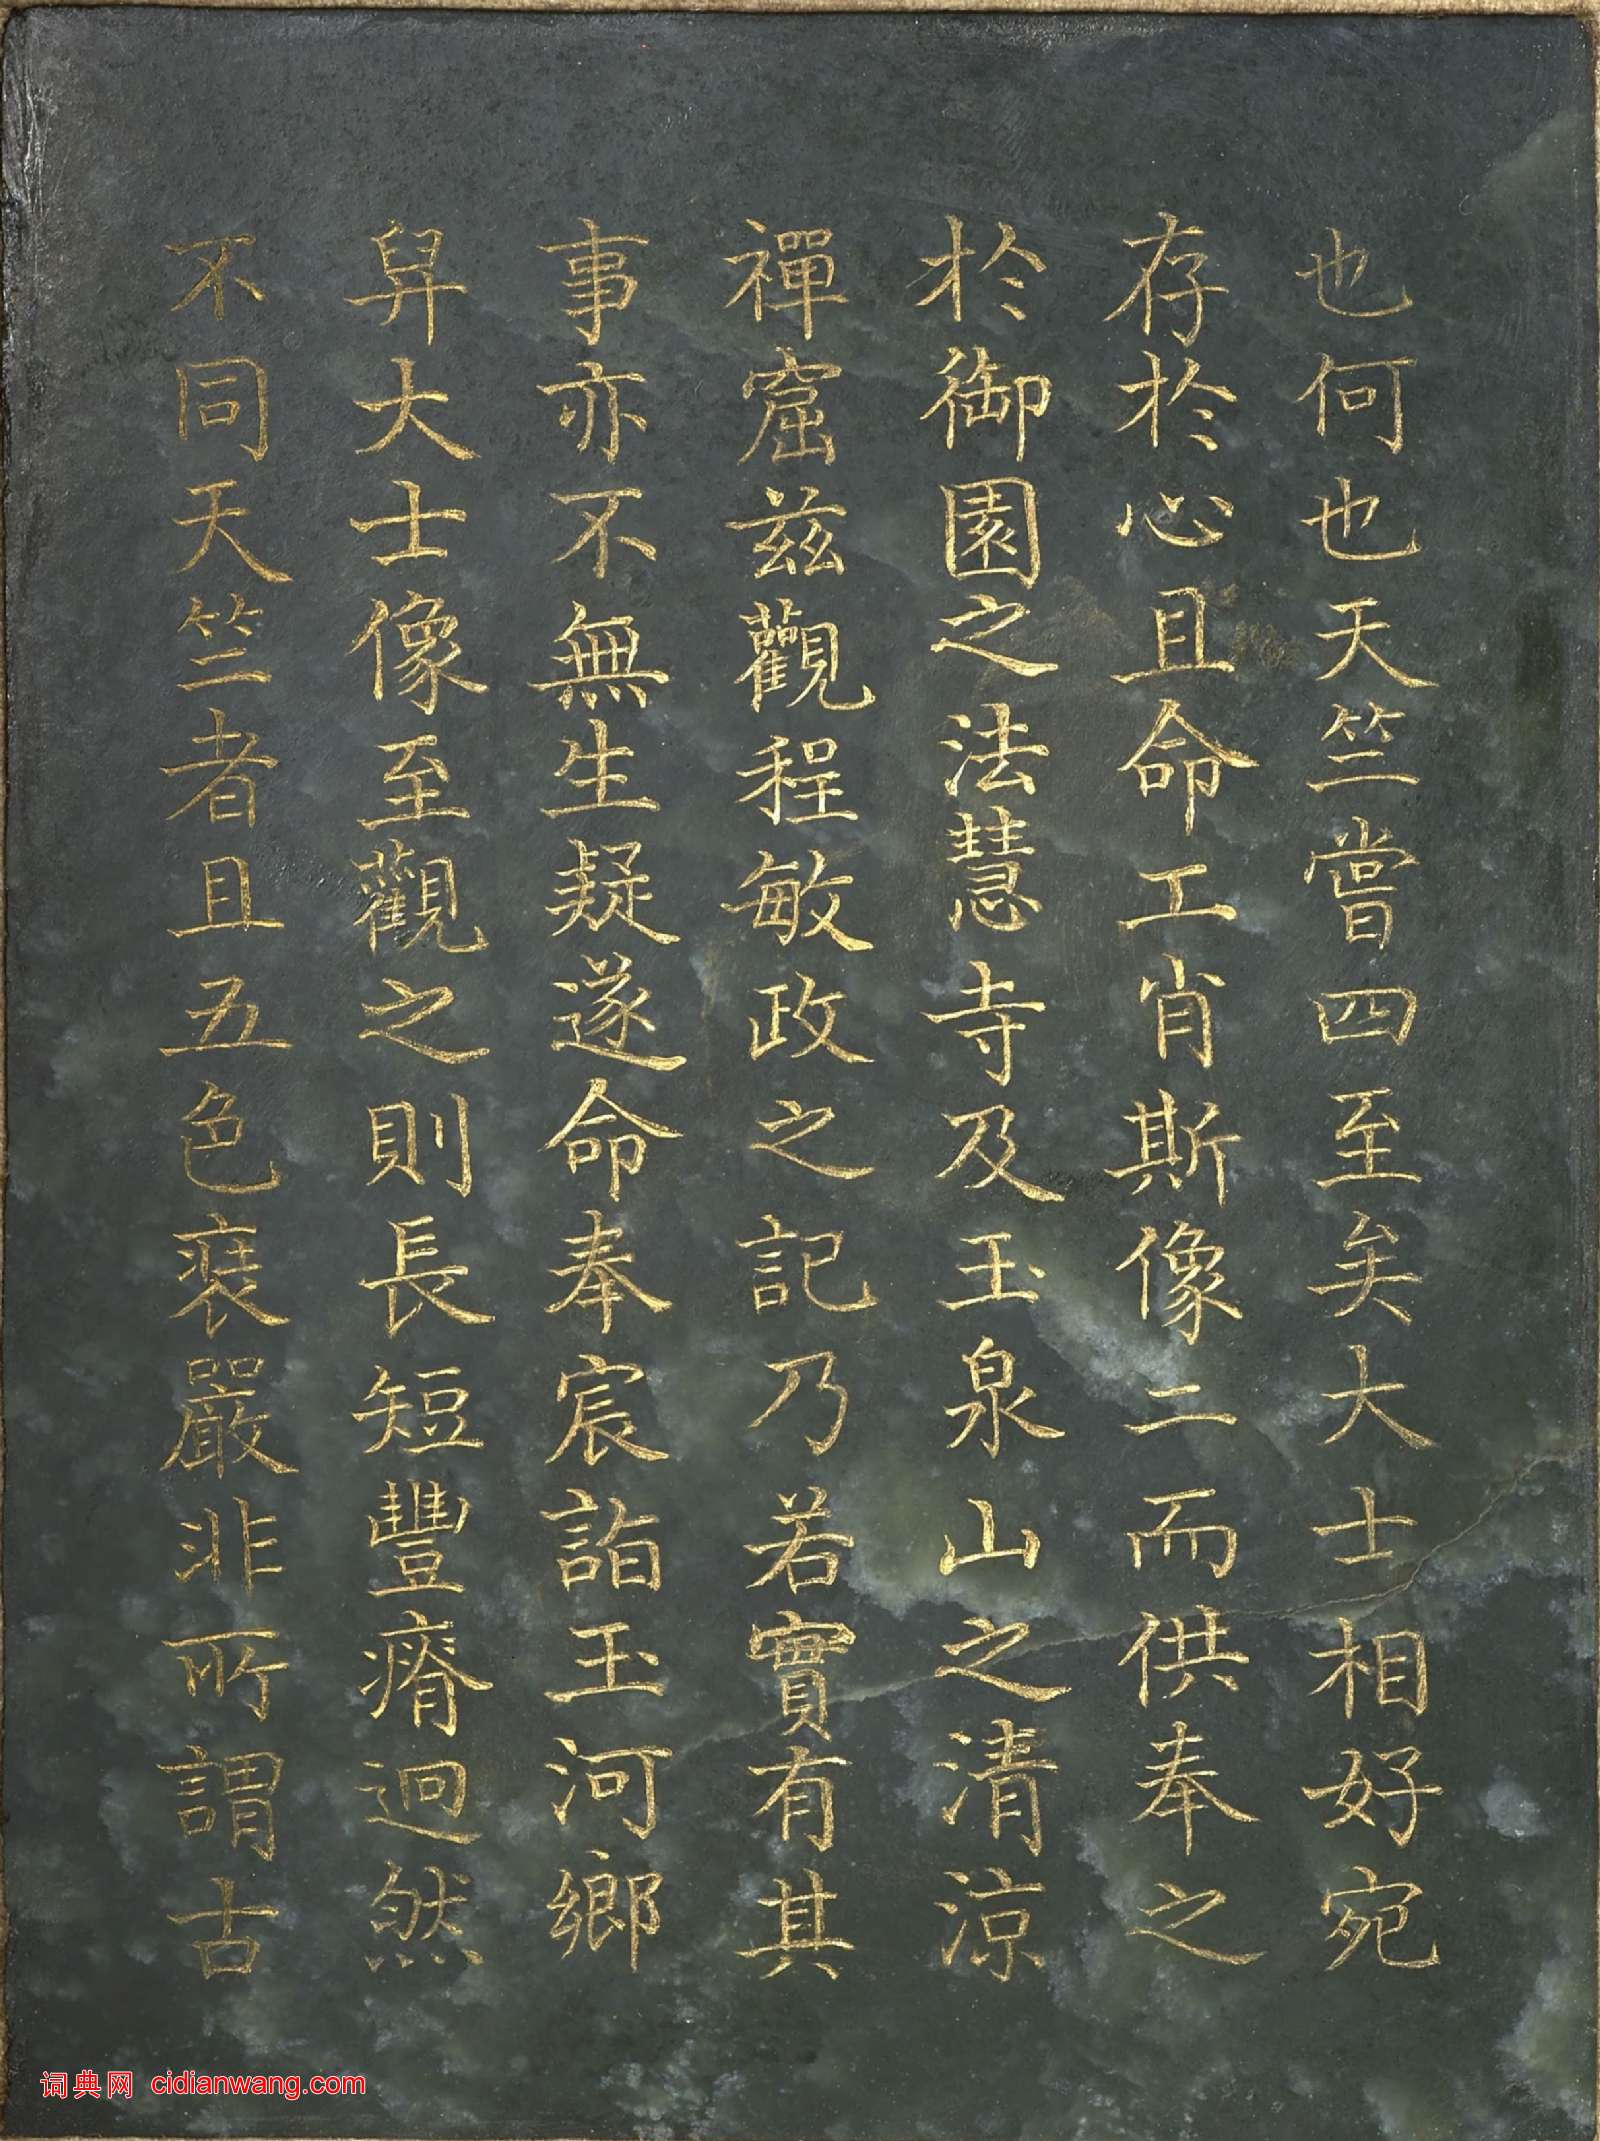 也何也天竺嘗四至矣大士相好宛
存於心且命工肖斯像二而供奉之
於御園之法慧寺及玉泉山之清涼
禪窟茲觀程敏政之記乃若實有其
事亦不無生疑遂命奉宸詣玉河鄉
舁大士像至觀之則長短豐瘠迥然
不同天竺者且五色裝嚴非所謂古
词典网 cidianwang.com